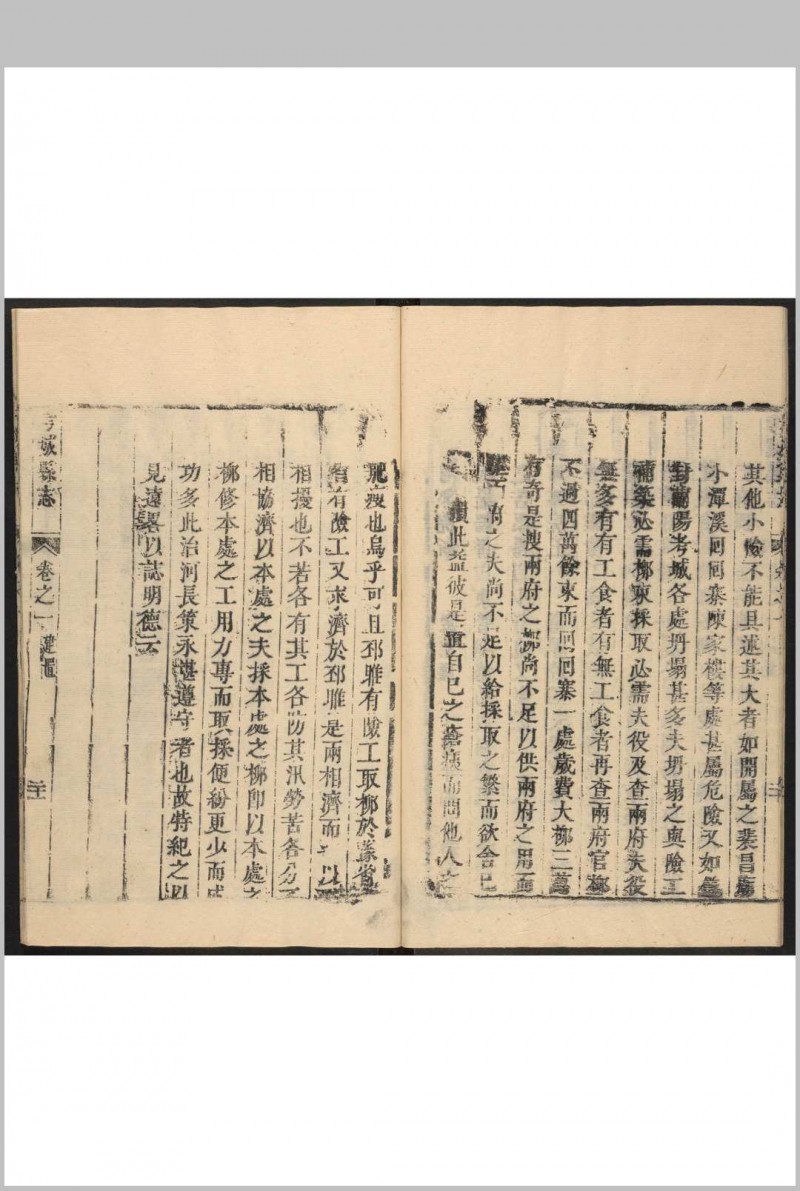 其他小險不能具述其大者如開屬之裴昌廟
小潭溪回回寨陳家樓等處甚屬危險又如儀
封蘭陽考城各處坍塌甚多夫坍塌之與險工
補築必需柳束採取必需夫役及查兩府夫役
無多有有工食者有無工食者再查兩府官柳
不過四萬餘束而回回寨一處歲費大柳三萬
有奇是搜兩府之柳尚不足以供兩府之用而
府之夫尚不足以給採取之繁而欲舍己
損此益彼是置自己之瘡痍而問他人之
肥瘦也烏乎可且邳雎有險工取柳於豫省
省有險工又求濟於邳雎是兩相濟而以
相擾也不若各有其工各防其汛勞苦各分不
相協濟以本處之夫採本處之柳即以本處之
柳修本處之工用力專而取採便紛更少而成
功多此治河長策永堪遵守者也故特紀之以
見遠畧以誌明德云
城縣志
卷之一
建置